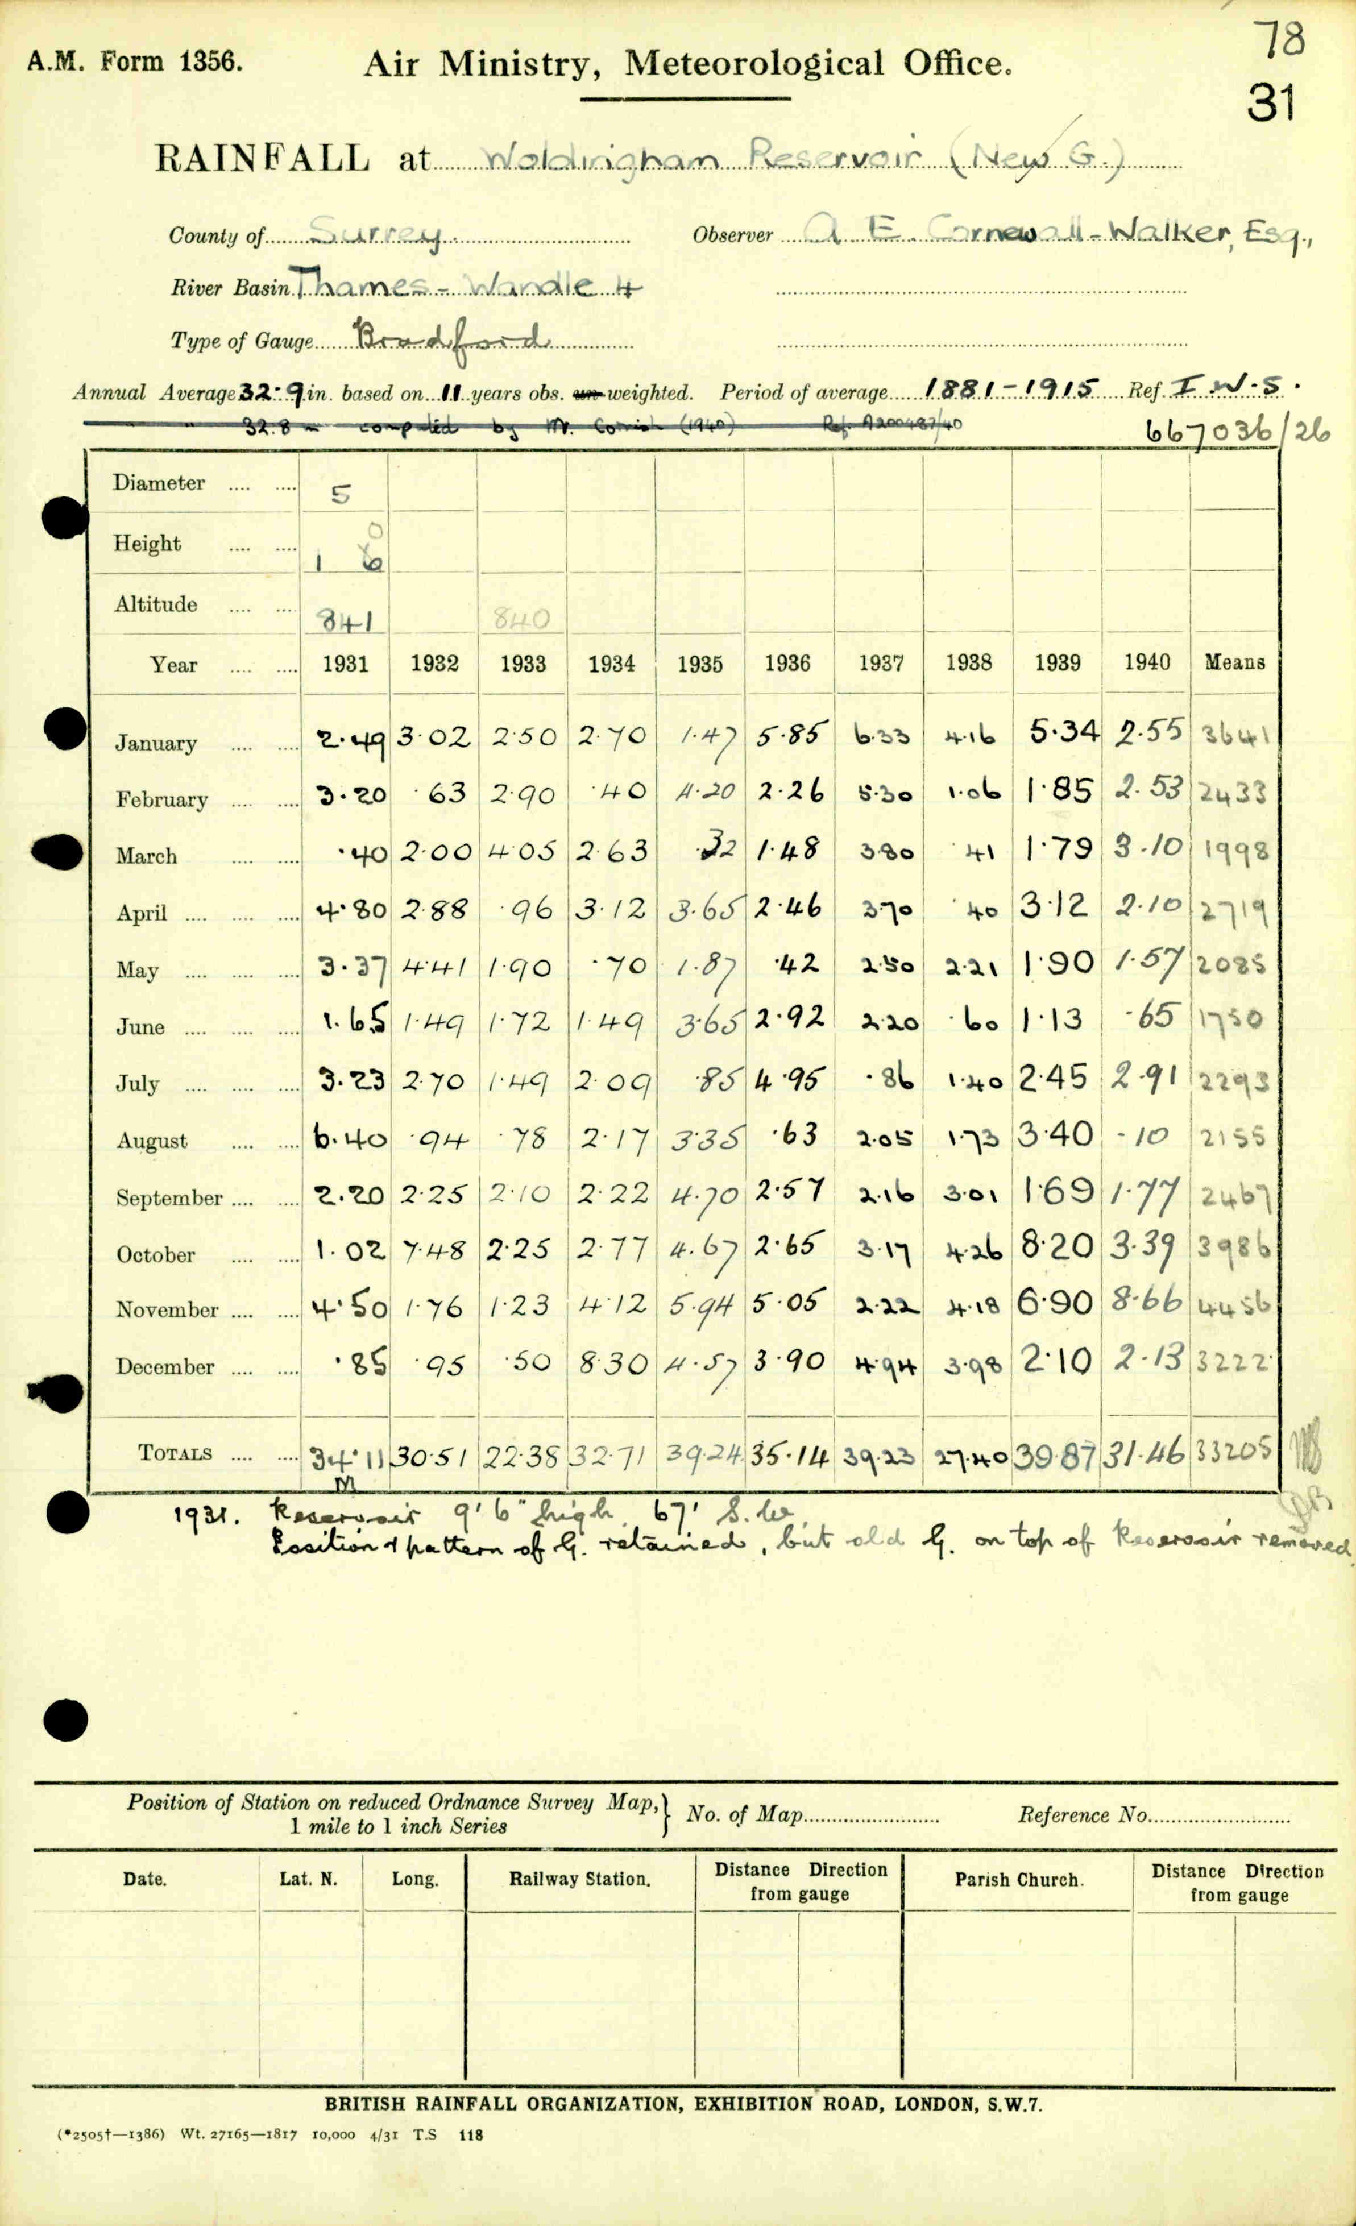 78
A.M. Form 1356. Air Ministry, Meteorological Office.
31
RAINFALL at Woldingham Reservoir (New G.)
County of Surrey Observer A E. Cornewall-Walker, Esq.,
River Basin Thames - Wandle 4
Type of Gauge Bradford
Annual Average 32.9 in. based on 11 years obs. un-weighted. Period of average 1881-1915 Ref. I.W.S.
" 32.8 in computed by Mr. Cornish (1940) Ref. A200487/40
667036/26
Diameter .... .... 5
Height .... .... 1 6 0
Altitude .... .... 841 840
Year .... .... 1931 1932 1933 1934 1935 1936 1937 1938 1939 1940 Means
January .... .... 2.49 3.02 2.50 2.70 1.47 5.85 6.33 4.16 5.34 2.55 3641
February .... .... 3.20 .63 2.90 .40 4.20 2.26 5.30 1.06 1.85 2.53 2433
March .... .... .40 2.00 4.05 2.63 .32 1.48 3.80 .41 1.79 3.10 1998
April .... .... .... 4.80 2.88 .96 3.12 3.65 2.46 3.70 .40 3.12 2.10 2719
May .... .... .... 3.37 4.41 1.90 .70 1.87 .42 2.50 2.21 1.90 1.57 2085
June .... .... .... 1.65 1.49 1.72 1.49 3.65 2.92 2.20 .60 1.13 .65 1750
July .... .... .... 3.23 2.70 1.49 2.09 .85 4.95 .86 1.40 2.45 2.91 2293
August .... .... 6.40 .94 .78 2.17 3.35 .63 2.05 1.73 3.40 .10 2155
September .... .... 2.20 2.25 2.10 2.22 4.70 2.57 2.16 3.01 1.69 1.77 2467
October .... .... 1.02 7.48 2.25 2.77 4.67 2.65 3.17 4.26 8.20 3.39 3986
November .... .... 4.50 1.76 1.23 4.12 5.94 5.05 2.22 4.18 6.90 8.66 4456
December .... .... .85 .95 .50 8.30 4.57 3.90 4.94 3.98 2.10 2.13 3222
TOTALS .... .... 34.11 30.51 22.38 32.71 39.24 35.14 39.23 27.40 39.87 31.46 33205
M
1931. Reservoir 9' 6" high, 67' S.W.
Position & pattern of G. retained, but old G. on top of Reservoir removed
Position of Station on reduced Ordnance Survey Map,} No. of Map.......... Reference No..........
1 mile to 1 inch Series
Date. Lat. N. Long. Railway Station. Distance Direction from gauge Parish Church. Distance Direction from gauge
BRITISH RAINFALL ORGANIZATION, EXHIBITION ROAD, LONDON, S.W.7.
(*2505†—1386) Wt. 27165—1817 10,000 4/31 T.S 118